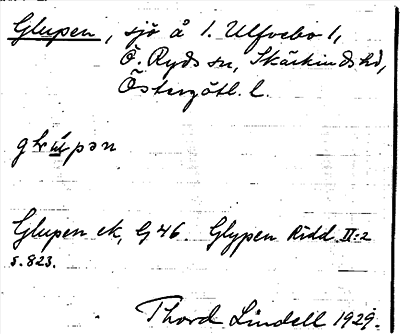 Glupen, sjö å 1. Ulfvebo 1,
Ö. Ryds sn, Skärkinds hd,
Östergötl. l.
Glupen ek, Gj 46 Glypen Ridd. II:2
s. 823.
Thord Lindell 1929.